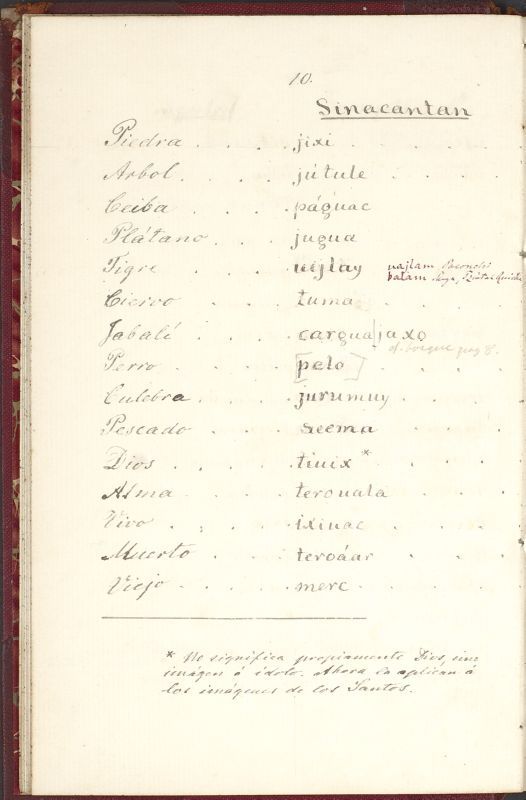 10.
Sinacantan
Piedra . . . . jixi . . . .
Arbol . . . . jútule . . . .
Ceiba . . . . páguac
Plátano . . . jugua
Tigre . . . . uejlay najlam
balam
Ciervo . . . . tuma . . . .
Jabalí . . . . cargua|jaxo
pag 8.
Perro . . . . [pelo]
Culebra . . . jurumuy . . .
Pescado . . . seema . . . .
Dios . . . . tiuix* . . . .
Alma . . . . terouala . . .
Vivo . . . . ixinac . . . .
Muerto . . . teroáar . . .
Viejo . . . . merc . . . .
* No significa propiamente Dios, sino
imágen ó idolo. Ahora lo aplican á
los imágenes de los Santos.